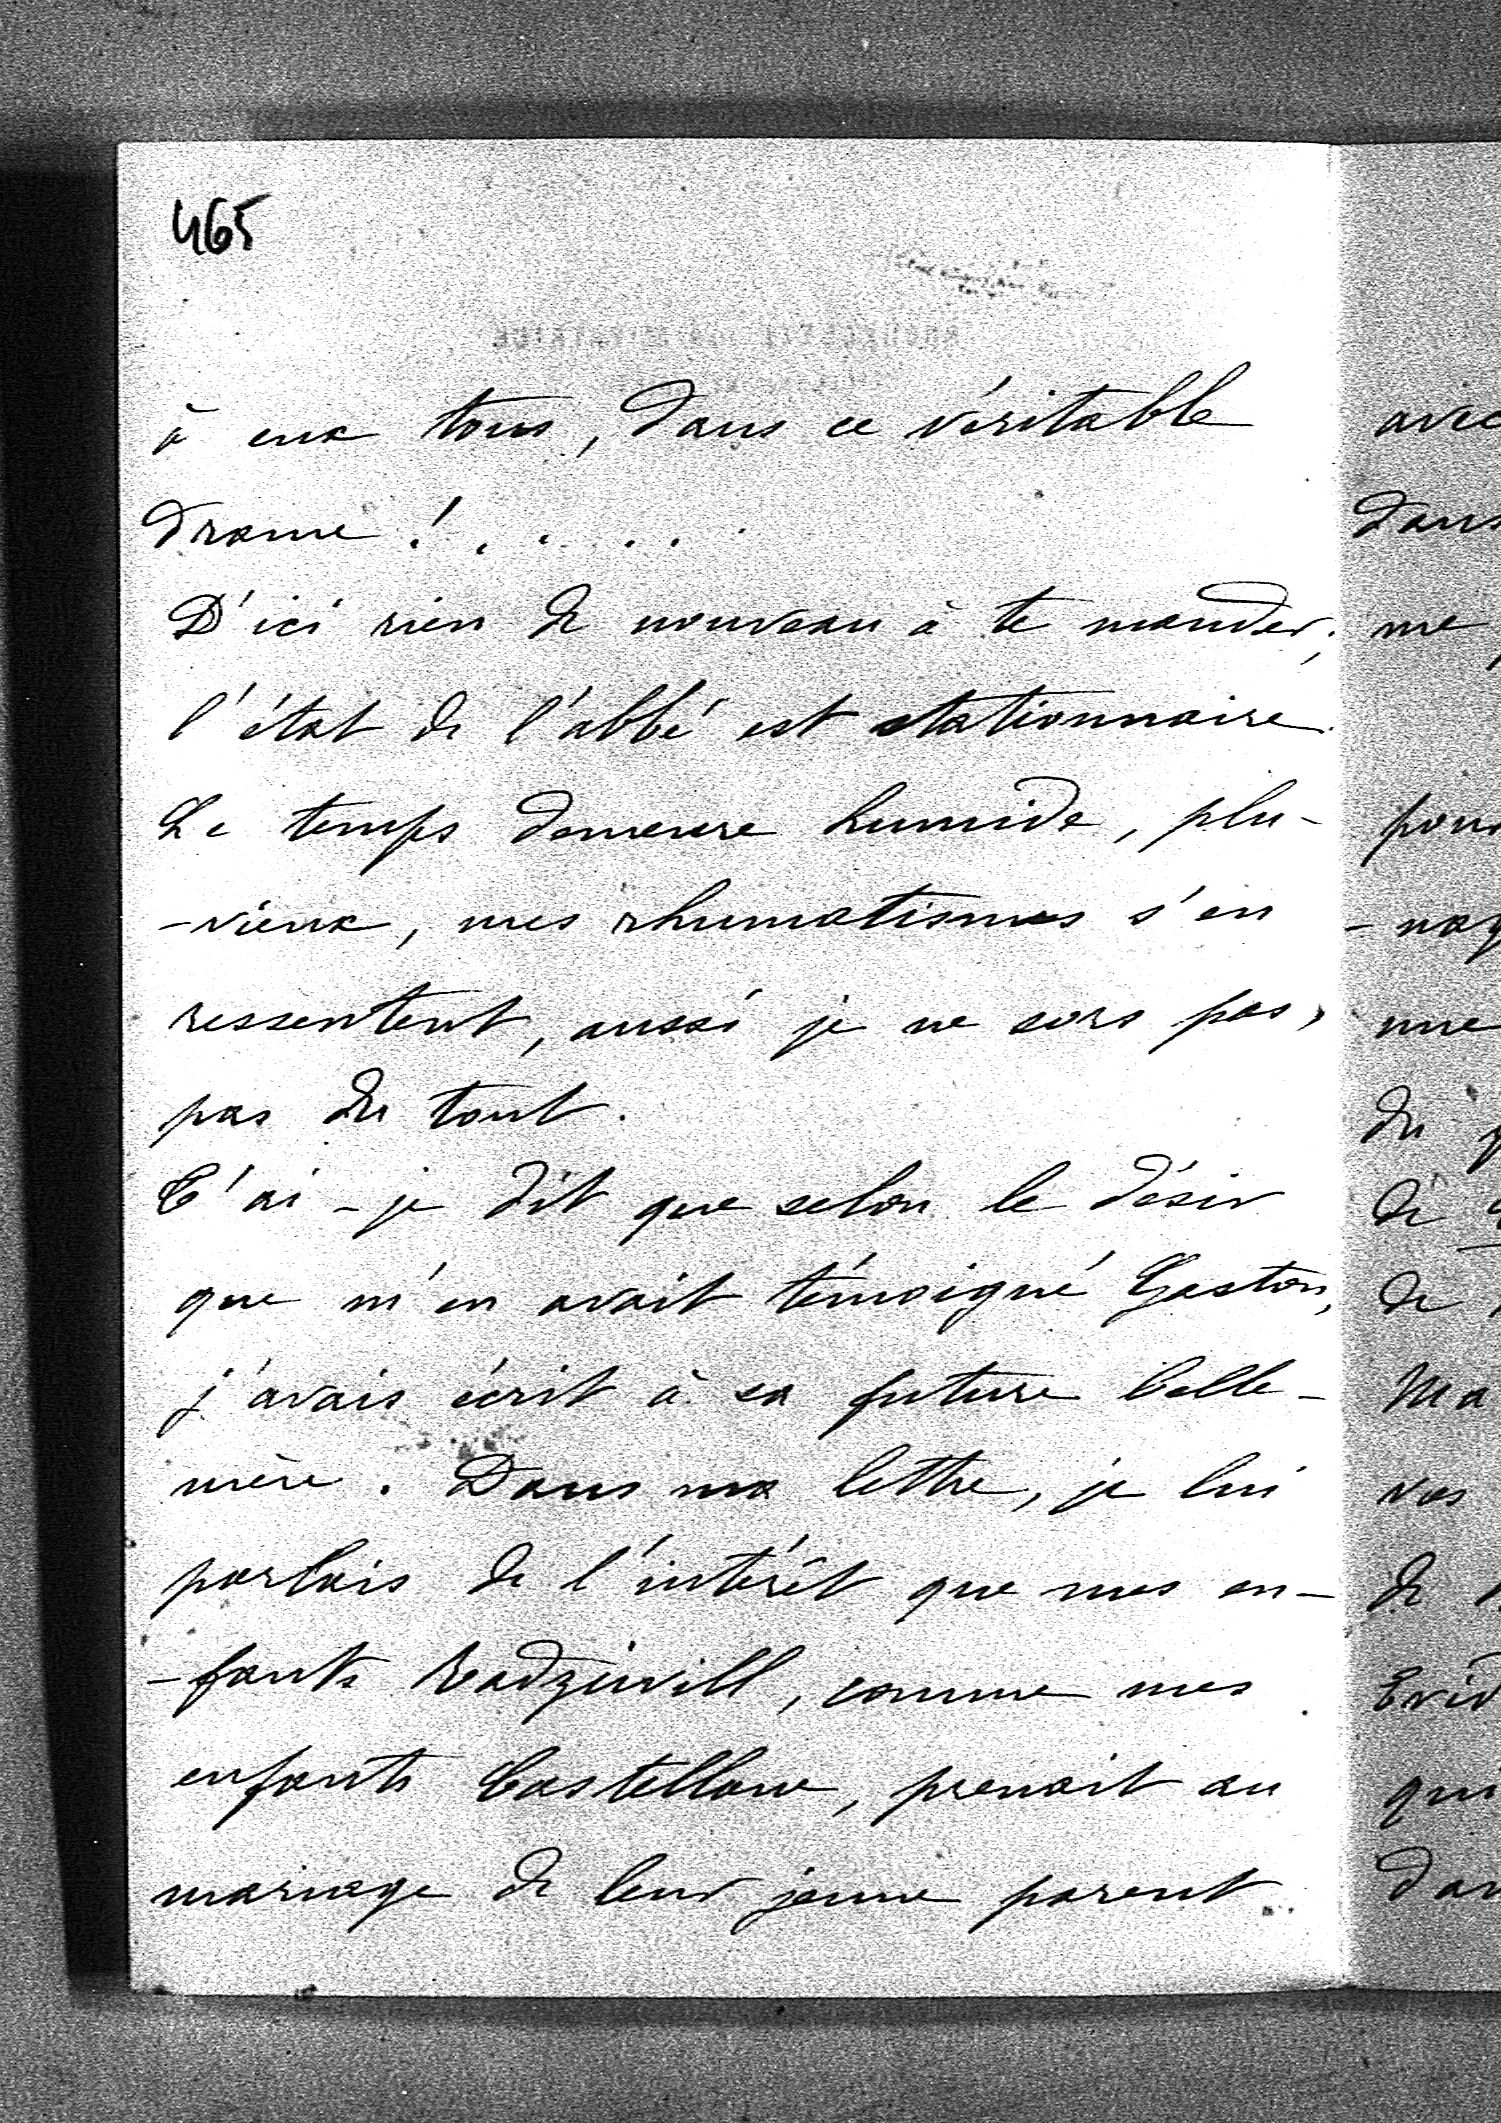 465
à eux tous, dans ce véritable
drame ! . . . . .
D'ici rien de nouveau à te mander;
l'état de l'abbé est stationnaire.
Le temps demeure humide, plu-
-vieux, mes rhumatismes s'en
ressentent, aussi je ne sors pas,
pas du tout.
T'ai-je dit que selon le désir
que m'en avait témoigné Gaston,
j'avais écrit à sa future belle-
mère. Dans ma lettre, je lui
parlais de l'intérêt que mes en-
-fants Radziwill, comme mes
enfants Castellane, prenait au
mariage de leur jeune parent
avec
dans
me
pour
une
du
de
de
Ma
vos
de
qui